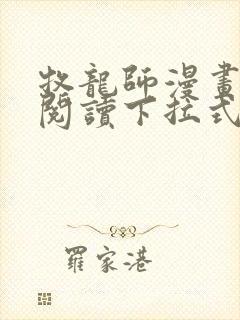 牧龍師漫畫
閱讀下拉式
羅家港